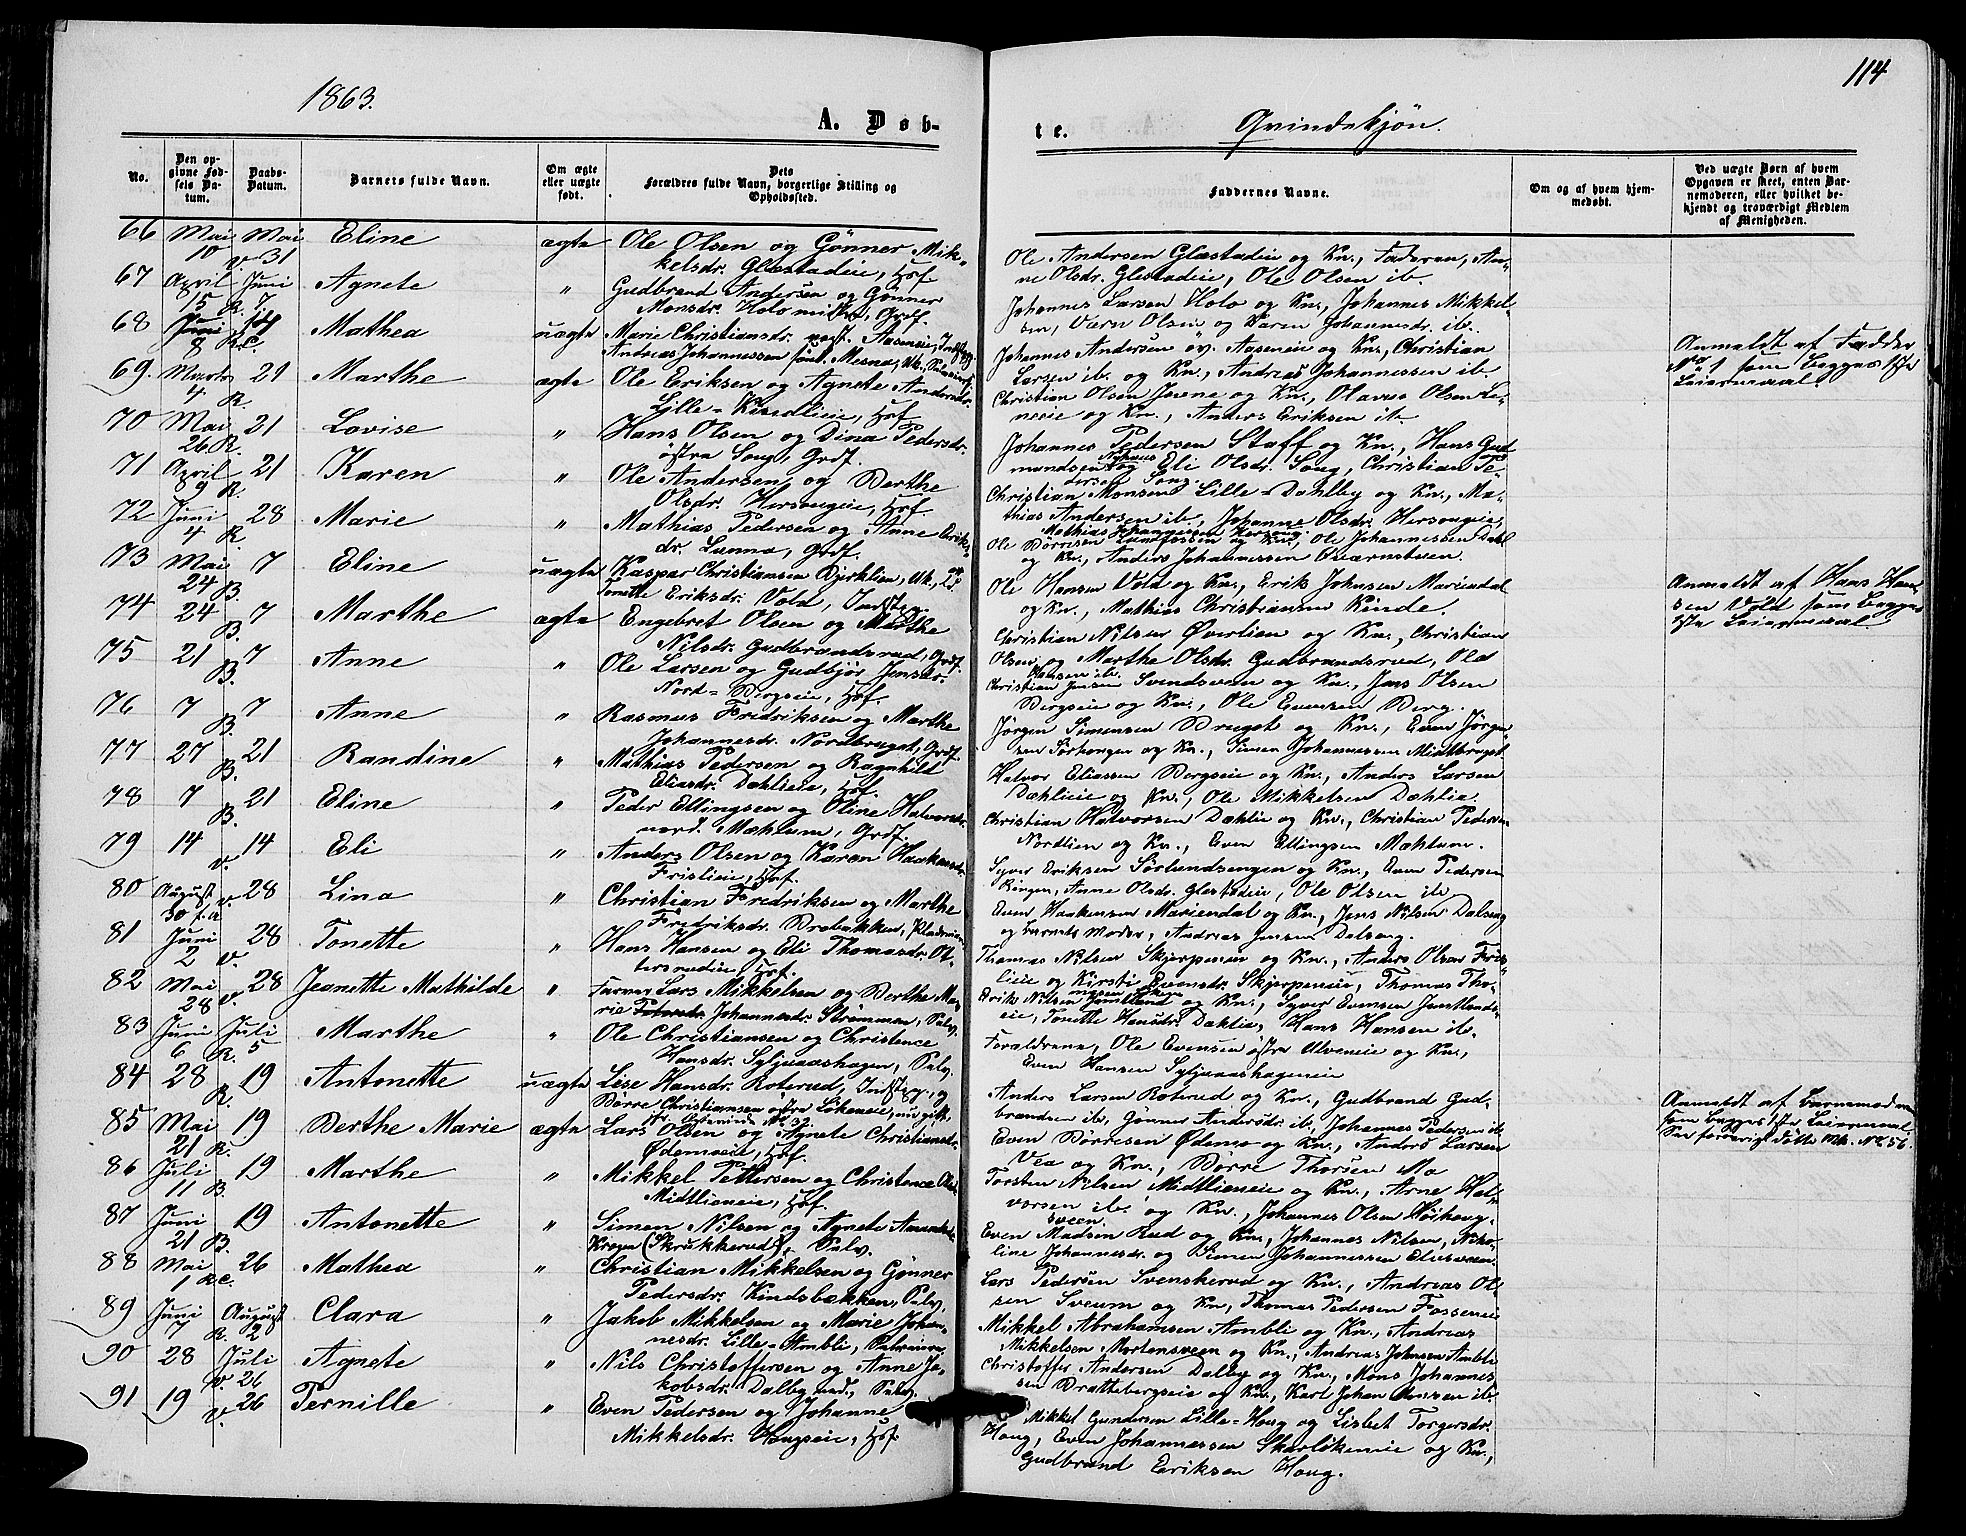 1863.
114
A. Døb-
te.
Qvindekjön.
No.
Den op-
givne Fød-
sels Da-
tum.
Daabs-
Datum.
Barnets fulde Navn.
Om ægte
eller uægte
født.
Dets
Forældres fulde Navn, borgerlige Stilling og
Opholdssted.
Faddernes Navne.
Om og af hvem hjem-
medøbt.
Ved uægte Børn af hvem
Opgaven er skeet, enten Bar-
nemoderen, eller hvilket be-
kjendt og troværdigt Medlem
af Menigheden.
66 Mai 10 Mai v. 31 Eline ægte Ole Olsen og Gönner Mik-
kelsdr. Glæstadeie, Hsf.
Ole Andersen Glæstadeie og Kn., Faderen, An-
ne Olsdr. Glestadeie, Ole Olsen ib.
67 April 15 Juni R. 7 Agnete " Gudbrand Andersen og Gönner
Monsdr. Holo, Grdf.
Johannes Larsen Holo og Kn., Johannes Mikkel-
sen, Olsen og Karen Johannesdr. ib.
68 Juni 8 Mathea uægte Marie Christiansdr. Aaseneie, Indst.
Andreas Johannessen Mesna, Uk.
Johannes Andersen öv. Aaseneie og Kn., Christian
Larsen ib. og Kn., Andreas Johannessen ib.
Anmeldt af Fadder
No 1 som Begges 1ste
Leiermaal.
69 Marts 4 R. 21 Marthe ægte Ole Eriksen og Agnete Andersdr.
Lille-Kindlieie, Hsf.
Christian Olsen Jevne og Kn., Olaves Olsen Le-
neeie og Kn., Anders Eriksen ib.
70 Mai 26 R. 21 Lovise " Hans Olsen og Dina Pedersdr.
östre Soug, Grdf.
Johannes Pedersen Staff og Kn., Hans Gud-
mundsen og Eli Olsdr. Soug, Christian Pe-
dersen Soug.
71 April 9 R. 21 Karen " Ole Andersen og Berthe
Olsdr. Hersougeie, Hsf.
Christian Monsen Lille-Dahlby og Kn., Ma-
thias Andersen ib., Johanne Olsdr. Hersougeie,
Mathias Johannessen Hersoug.
72 Juni 4 R. 28 Marie " Mathias Pedersen og Anne Eriks-
dr. Lunna, Grdf.
Ole Börresen og Kn., Ole Johannessen Dahl
og Kn., Anders Johannessen Qværnsteen.
73 Mai 24 B. 7 Eline uægte Kaspar Christiansen Bjerklien, Uk., og
Tonette Eriksdr. Vold, Indst.
Ole Hansen Vold og Kn., Erik Johnsen Mariendal
og Kn., Mathias Christiansen Kinde.
Anmeldt af Hans Han-
sen Vold som Begges
1ste Leiermaal.
74 24 B. 7 Marthe ægte Engebret Olsen og Marthe
Nilsdr. Gudbrandsrud, Grdf.
Christian Nilsen Överlien og Kn., Christian
Olsen og Marthe Olsdr. Gudbrandsrud, Ole
Hansen ib.
75 21 B. 7 Anne " Ole Larsen og Gudbjør Jensdr.
Nord-Bergseie, Hsf.
Christian Jensen Svendsveen og Kn., Jens Olsen
Bergseie og Kn., Ole Evensen Berg.
76 7 B. 7 Anne " Rasmus Fredriksen og Marthe
Johannesdr. Nordbrugat, Grdf.
Jörgen Simensen Brugat og Kn., Even Jörgen-
sen Sörhougen og Kn., Simen Johannessen Midtbrugat.
77 27 B. 21 Randine " Mathias Pedersen og Ragnhild
Eliasdr. Dæhlieie, Hsf.
Halvor Eliassen Bergseie og Kn., Anders Larsen
Dæhlieie og Kn., Ole Mikkelsen Dæhlie.
78 7 B. 21 Eline " Peder Ellingsen og Oline Halvorsdr.
nord. Mæhlum, Grdf.
Christian Halvorsen Dæhlie og Kn., Christian Pedersen
Nordlien og Kn., Even Ellingsen Mæhlum.
79 14 v. 14 Eli " Anders Olsen og Karen Haakensdr.
Frislieie, Hsf.
Syver Eriksen Sörlundsengen og Kn., Even Pedersen
Ringen, Anne Olsdr. Glestadeie, Ole Olsen ib.
80 August 30 f. a. v. 28 Lina " Christian Fredriksen og Marthe
Fredriksdr. Brobakken,
Even Haakensen Mariendal og Kn., Jens Nilsen Dalseng
og Barnets Moder, Andreas Jensen Dalseng.
81 Juni 2 v. 28 Tonette " Hans Hansen og Eli Thomasdr. Ot-
tersrudeie, Hsf.
Thomas Nilsen Skjerpeneie og Kn., Anders Olsen Fris-
lieie og Kirsti Evensdr. Skjerpeneie, Thomas Tho-
82 Mai 28 v. 28 Jeanette Mathilde " Farver Lars Mikkelsen og Berthe Ma-
rie Johannesdr. Strömmen, Selv.
Eriks Nilsen Jemtland og Kn., Syver Evensen Jemtlands-
eie, Tonette Hansdr. Dæhlie, Hans Hansen ib.
83 Juni 6 Juli R. 5 Marthe " Ole Christiansen og Christence
Hansdr. Syljuaashagen, Selv.
Forældrene, Ole Evensen östre Ulveneie og Kn.,
Even Hansen Syljuaashageneie
84 28 R. 19 Antonette uægte Lise Hansdr. Roterud, Indst., og
Börre Christiansen östre Lökeneie,
Anders Larsen Roterud og Kn., Gudbrand Gud-
brandsen ib., Gönner Andersdr. ib., Johannes Pedersen ib.
Anmeldt af Barnemoderen
som Begges 1ste Leiermaal.
85 Mai 21 R. 19 Berthe Marie ægte Lars Olsen og Agnete Christiansdr.
Ödemoeie, Hsf.
Even Börresen Ödemo og Kn., Anders Larsen
Vea og Kn., Börre Thorsen Mo
86 Juli 11 B. 19 Marthe " Mikkel Pettersen og Christence Olsdr.
Midtlieneie, Hsf.
Torsten Nilsen Midtlieneie og Kn., Arne Hal-
vorsen ib. og Kn., Johannes Olsen Höihoug-
sveen.
87 Juni 21 B. 19 Antonette " Simen Nilsen og Agnete
Krogen (Skrukkerud), Selv.
Even Madsen Rud og Kn., Johannes Nilsen, Niko-
line Johannesdr. og Simen Johannessen Eliesveen.
88 Mai 1 26 Mathea " Christian Mikkelsen og Gönner
Pedersdr. Kindsbakken, Selv.
Lars Pedersen Svenskerud og Kn., Andreas Ol-
sen Sveum og Kn., Thomas Pedersen Fosseneie
89 Juni 7 August R. 2 Clara " Jakob Mikkelsen og Marie Johan-
nesdr. Lille-Ambli,
Mikkel Abrahamsen Ambli og Kn., Andreas
Mikkelsen Mortensveen og Kn., Andreas Johnsen Ambli
90 28 Juli v. 26 Agnete " Nils Christoffersen og Anne Ja-
kobsdr. Dalby ned., Selv.
Christoffer Andersen Dalby og Kn., Mons Johannes-
sen Brattebergseie og Kn., Karl Johan Monsen ib.
91 19 v. 26 Pernille " Even Pedersen og Johanne
Mikkelsdr. Hougseie, Hsf.
Mikkel Gundersen Lille-Houg og Lisbet Torgersdr.
Houg, Even Johannessen Skarlökeneie og Kn.,
Gudbrand Eriksen Houg.